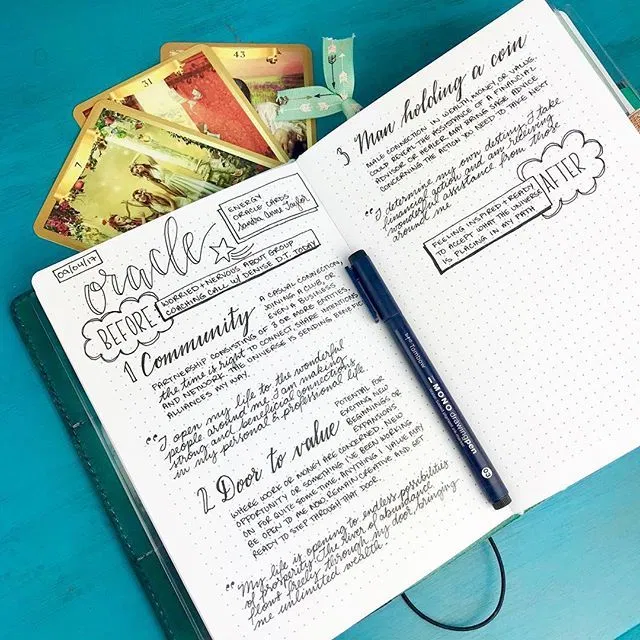 43
31
7
09/04/17
oracle
ENERGY
ORACLE CARDS
Sandra Anne Taylor
BEFORE
WORRIED + NERVOUS ABOUT GROUP
COACHING CALL W/ DENISE D.T. TODAY
1 Community
A CASUAL CONNECTION,
JOINING A CLUB, OR
EVEN A BUSINESS
PARTNERSHIP CONSISTING OF 3 OR MORE ENTITIES,
the TIME IS RIGHT to CONNECT SHARE INTENTIONS
AND NETWORK. THE UNIVERSE IS SENDING BENEFIC
ALLIANCES MY WAY.
"I open my life to the wonderful
people around me. I am making
strong and beneficial connections
in my personal & professional life.
2 Door to value
POTENTIAL FOR
EXCITING NEW
BEGINNINGS OR
EXPANSIONS
WHERE WORK OR MONEY ARE CONCERNED. NEW
OPPORTUNITY OR SOMETHING I'VE BEEN WORKING
ON FOR QUITE SOME TIME, ANYTHING I VALUE MAY
BE OPEN TO ME NOW. REMAIN CREATIVE AND GET
READY TO STEP THROUGH THAT DOOR.
"My life is opening to endless possibilities
of prosperity. The river of abundance
flows freely through my door, bringing
me unlimited wealth
3 Man holding a coin
MALE CONNECTION IN WEALTH, MONEY, OR VALUE.
COULD REVEAL THE ASSISTANCE OF A FINANCIAL
ADVISOR OR DEALER MAY BRING SAGE ADVICE
CONCERNING THE ACTION YOU NEED TO TAKE NEXT
"I determine my own destiny. I take
financial action and am receiving
wonderful assistance from those
around me
AFTER
FEELING INSPIRED + READY
TO ACCEPT WHAT THE UNIVERSE
IS PLACING IN MY PATH
Tombow
MONO drawing pen